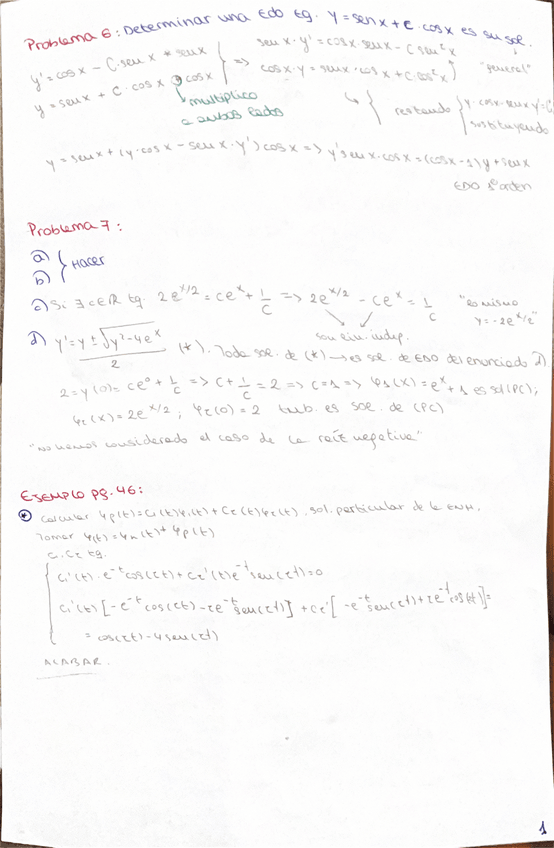 Problema 6: Determinar una Edo tq. y = sen x + C·cos x es su sol.
y' = cos x - C·sen x * sen x } => sen x·y' = cos x·sen x - C sen²x "general"
y = sen x + C·cos x cos x cos x·y = sen x·cos x + C·cos²x
multiplico
a ambos lados
restando
sustituyendo
y = sen x + (y·cos x - sen x·y') cos x => y' sen x·cos x = (cos x - 1) y + sen x
EDO 1er orden
Problema 7:
a)
b) } HACER
c) Si ∃ c∈ℝ tq. 2e^{x/2} = ce^x + 1/c => 2e^{x/2} - ce^x = 1/c "es mismo y = -2e^{x/2}"
son lin. indep.
d) y' = (y ± √(y² - 4e^x))/2 (*). Toda sol. de (*) → es sol. de EDO del enunciado d)
2 = y(0) = ce⁰ + 1/c => c + 1/c = 2 => c = 1 => φ₁(x) = e^x + 1 es sol (PC);
φ₂(x) = 2e^{x/2}; φ₂(0) = 2 tmb. es sol. de (PC)
"no hemos considerado el caso de la raíz negativa"
EJEMPLO pg. 46:
* Calcular φp(t) = C₁(t)φ₁(t) + C₂(t)φ₂(t). sol. particular de la ENH.
Tomar φ(t) = φh(t) + φp(t)
C₁, C₂ tq.
C₁'(t)·e^{-t} cos(2t) + C₂'(t) e^{-t} sen(2t) = 0
C₁'(t) [-e^{-t} cos(2t) - 2e^{-t} sen(2t)] + C₂' [-e^{-t} sen(2t) + 2e^{-t} cos(2t)] =
= cos(2t) - 4 sen(2t)
ACABAR.
1